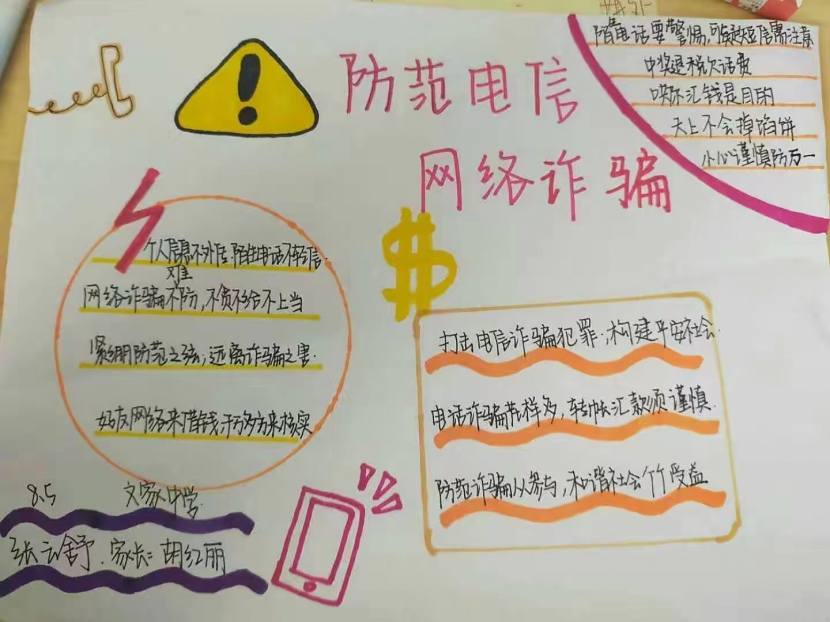 防范电信
网络诈骗
陌电话要警惕,可疑短信需注意
中奖退税欠话费
哄你汇钱是目的
天上不会掉馅饼
小心谨慎防万一
个人信息不外信.陌生电话不轻信.
网络诈骗难不防,不贪不给不上当
紧绷防范之弦,远离诈骗之害.
好友网络来借钱,千万多方来核实
打击电信诈骗犯罪,构建平安社会.
电话诈骗花样多,转帐汇款须谨慎.
防范诈骗从参与,和谐社会个个受益
8.5 文家中学.
张云舒.家长:胡红丽